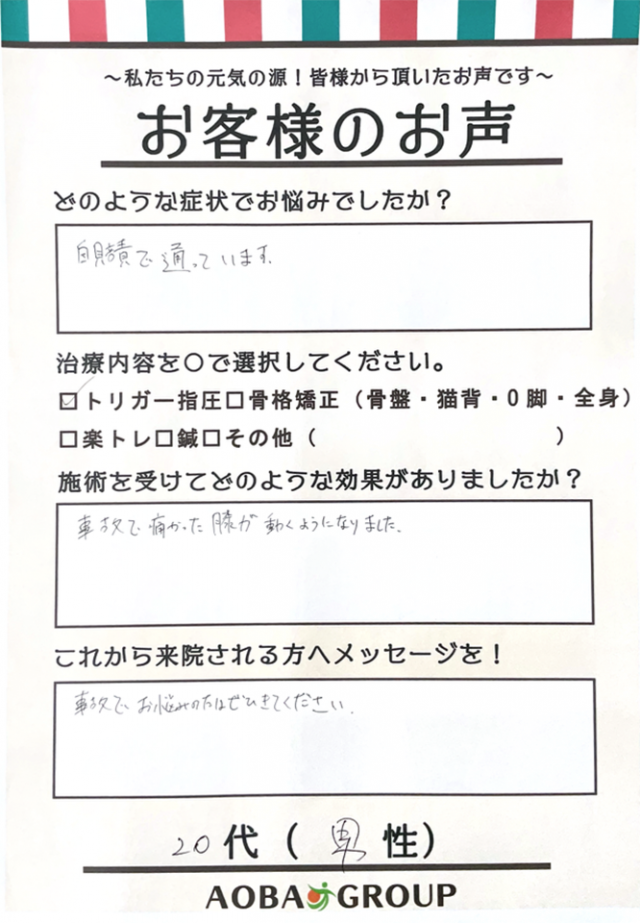 ～私たちの元気の源！皆様から頂いたお声です～
お客様のお声
どのような症状でお悩みでしたか？
自賠責で通っています。
治療内容を○で選択してください。
☑トリガー指圧□骨格矯正（骨盤・猫背・O脚・全身）
□楽トレ□鍼□その他（　　　　　　　　　　）
施術を受けてどのような効果がありましたか？
事故で痛かった膝が動くようになりました。
これから来院される方へメッセージを！
事故でお悩みの方はぜひきてください。
20代（男性）
AOBA GROUP